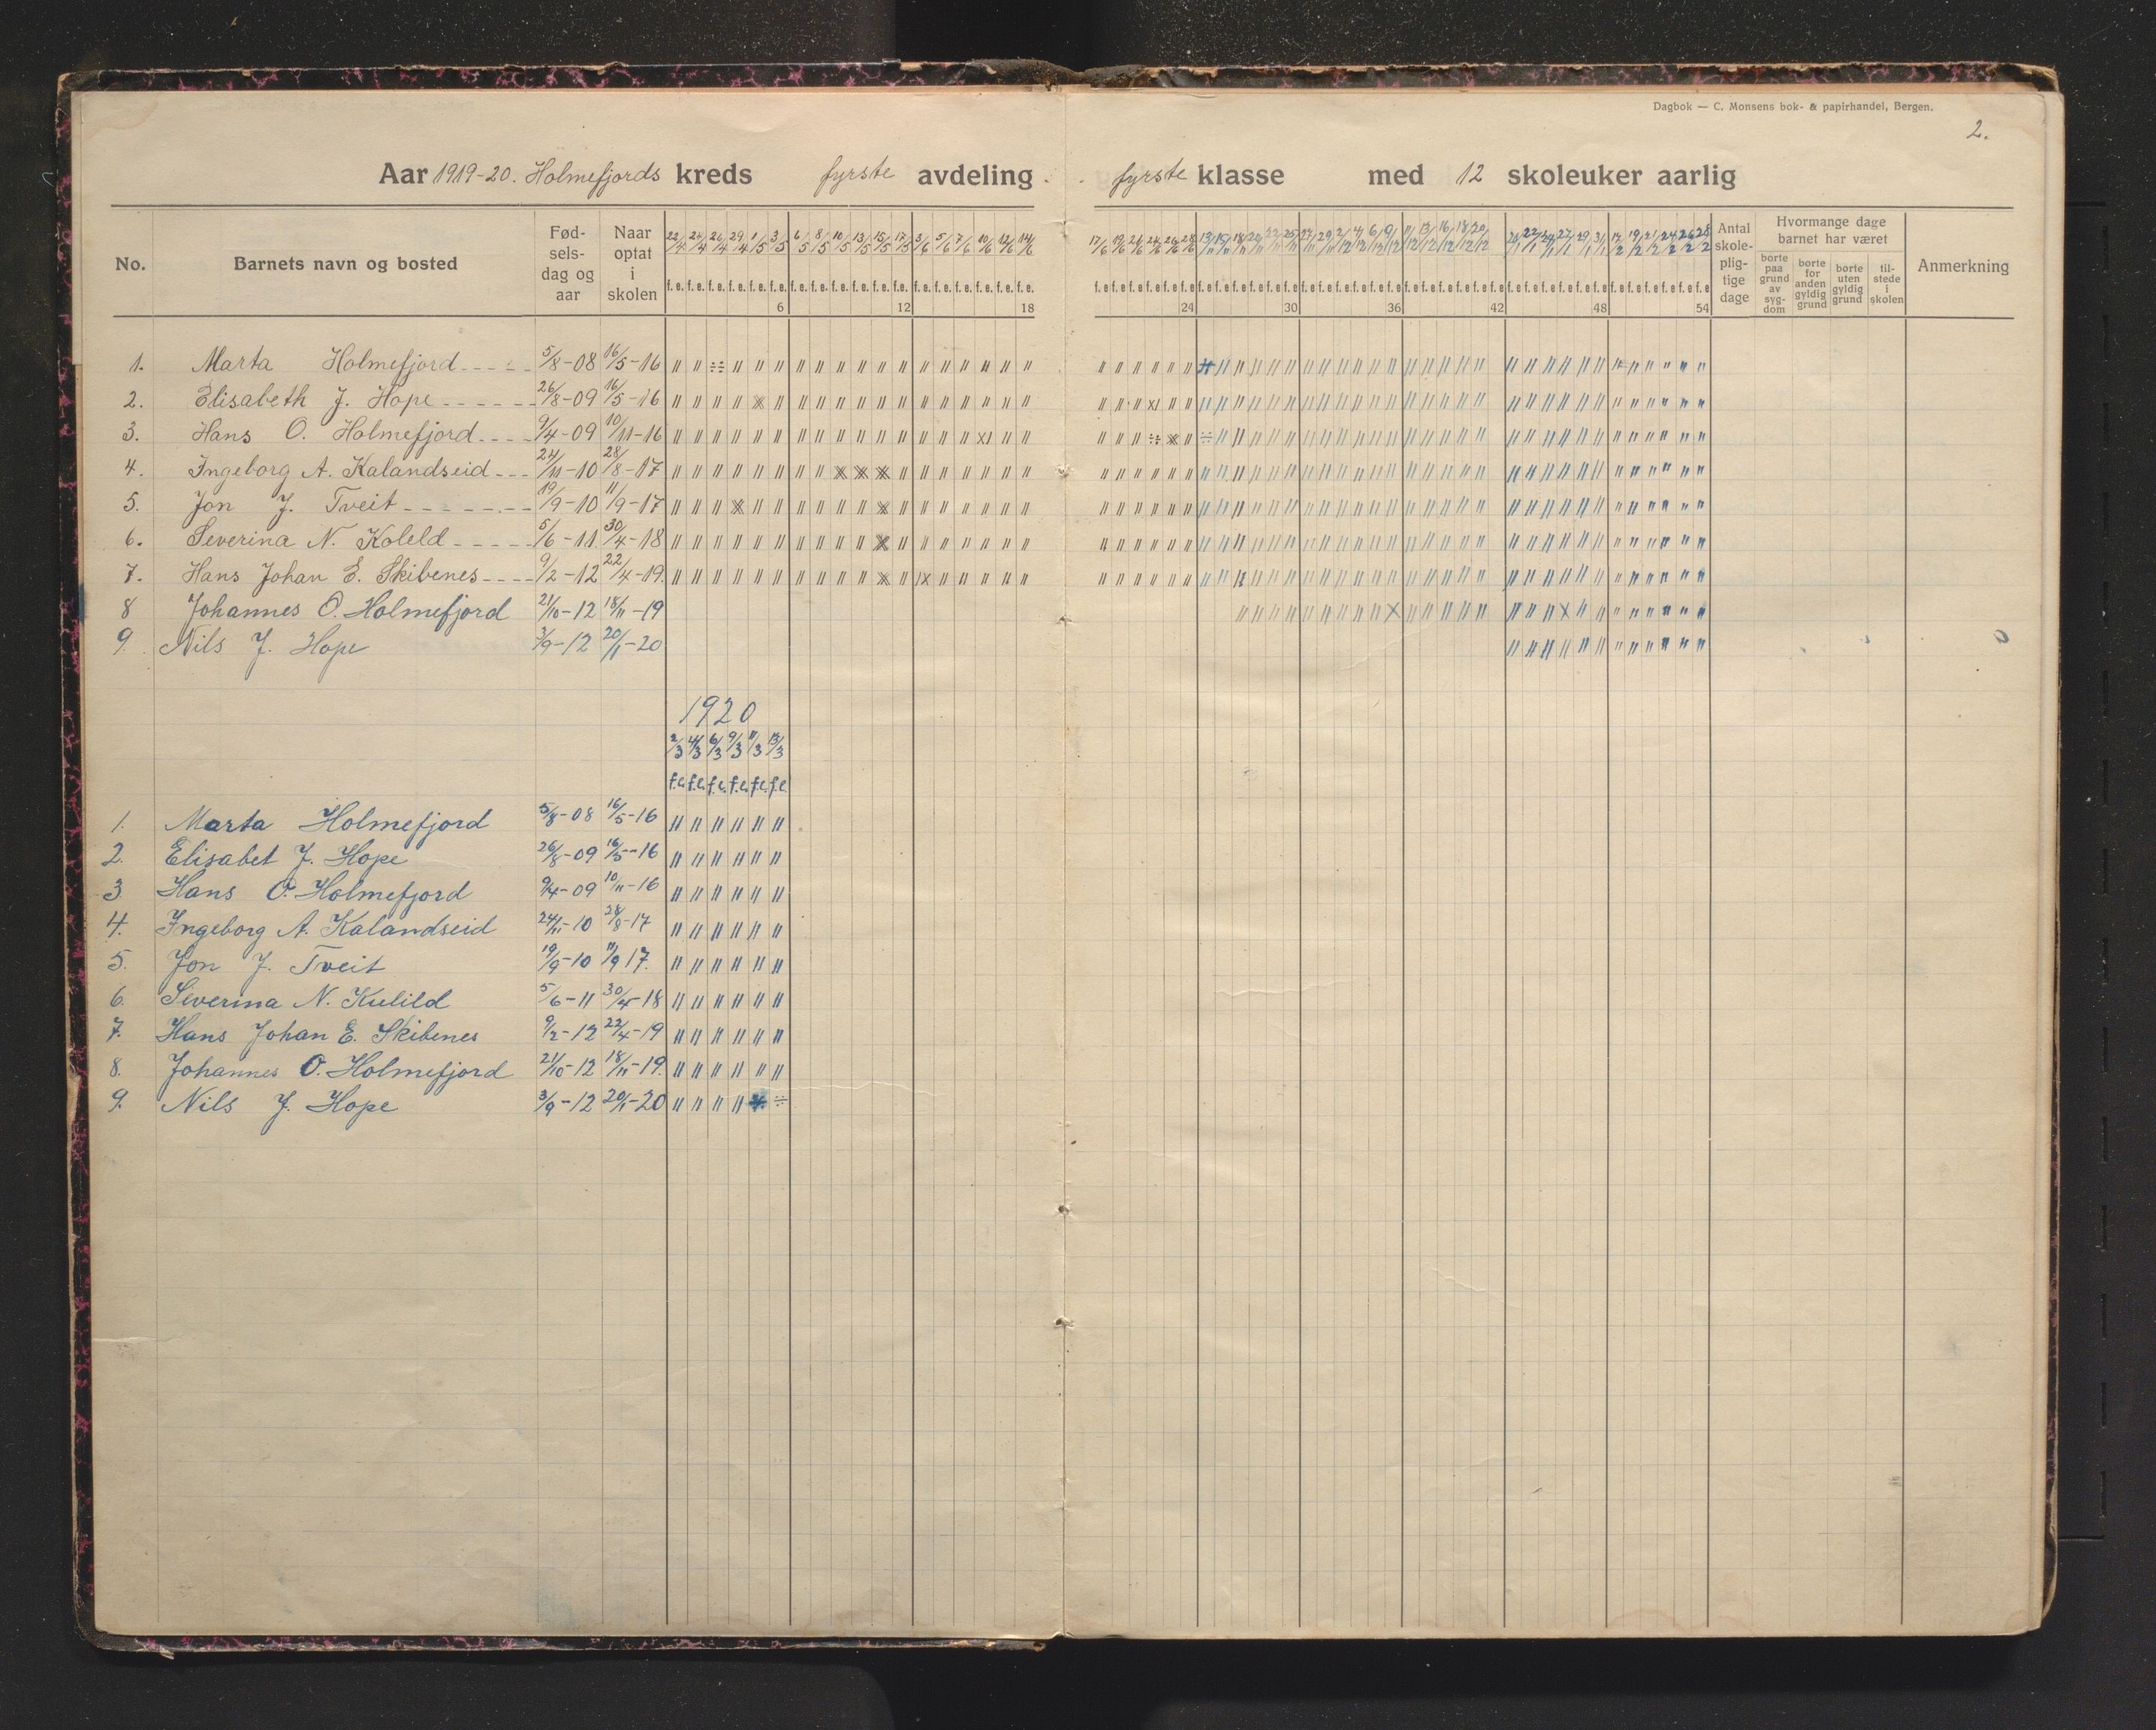 Dagbok — C. Monsens bok- & papirhandel, Bergen.
2.
Aar 1919-20. Holmefjords kreds fyrste avdeling. fyrste klasse med 12 skoleuker aarlig
No. Barnets navn og bosted Fød-sels-dag og aar Naar optat i skolen
22/4 24/4 26/4 29/4 1/5 3/5 6/5 8/5 10/5 13/5 15/5 17/5 3/6 5/6 7/6 10/6 12/6 14/6
17/6 19/6 21/6 24/6 26/6 28/6
Antal skole-plig-tige dage
Hvormange dage barnet har været
borte paa grund av syg-dom
borte for anden gyldig grund
borte uten gyldig grund
til-stede i skolen
Anmerkning
f. e. f. e. f. e. f. e. f. e. f. e. f. e. f. e. f. e. f. e. f. e. f. e. f. e. f. e. f. e. f. e. f. e. f. e.
6 12 18 24 30 36 42 48 54
1. Marta Holmefjord 5/8-08 16/5-16
2. Elisabeth J. Hope 26/8-09 16/5-16
3. Hans O. Holmefjord 9/4-09 10/11-16
4. Ingeborg A. Kalandseid 24/11-10 28/8-17
5. Jon J. Tveit 19/9-10 11/9-17
6. Severina N. Koleld 5/6-11 30/4-18
7. Hans Johan E. Skibenes 9/2-12 22/4-19.
8 Johannes O. Holmefjord 21/10-12 18/11-19
9. Nils J. Hope 3/9-12 20/1-20
1920
2/3 4/3 6/3 9/3 11/3 13/3
f.e. f.e. f.e. f.e. f.e. f.e.
1. Marta Holmefjord 5/8-08 16/5-16
2. Elisabet J. Hope 26/8-09 16/5-16
3 Hans O. Holmefjord 9/4-09 10/11-16
4. Ingeborg A. Kalandseid 24/11-10 28/8-17
5. Jon J. Tveit 19/9-10 11/9 17.
6. Severina N. Kulild 5/6-11 30/4-18
7. Hans Johan E. Skibenes 9/2-12 22/4-19
8. Johannes O. Holmefjord 21/10-12 18/11-19.
9. Nils J. Hope 3/9-12 20/1-20